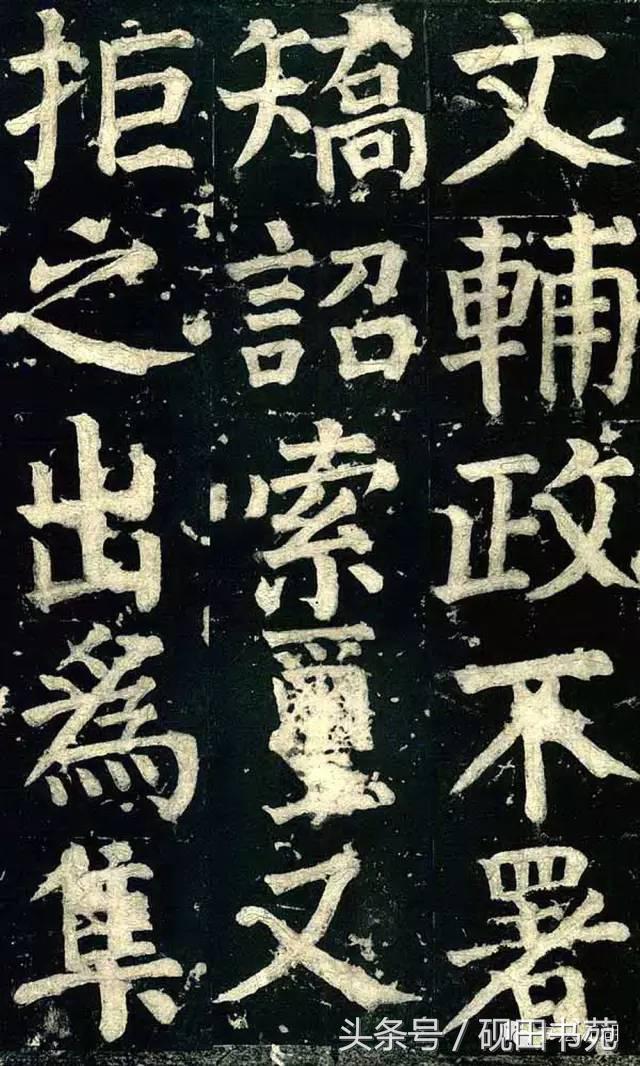 文輔政不署
矯詔索璽又
拒之出為集
头条号/砚田书苑